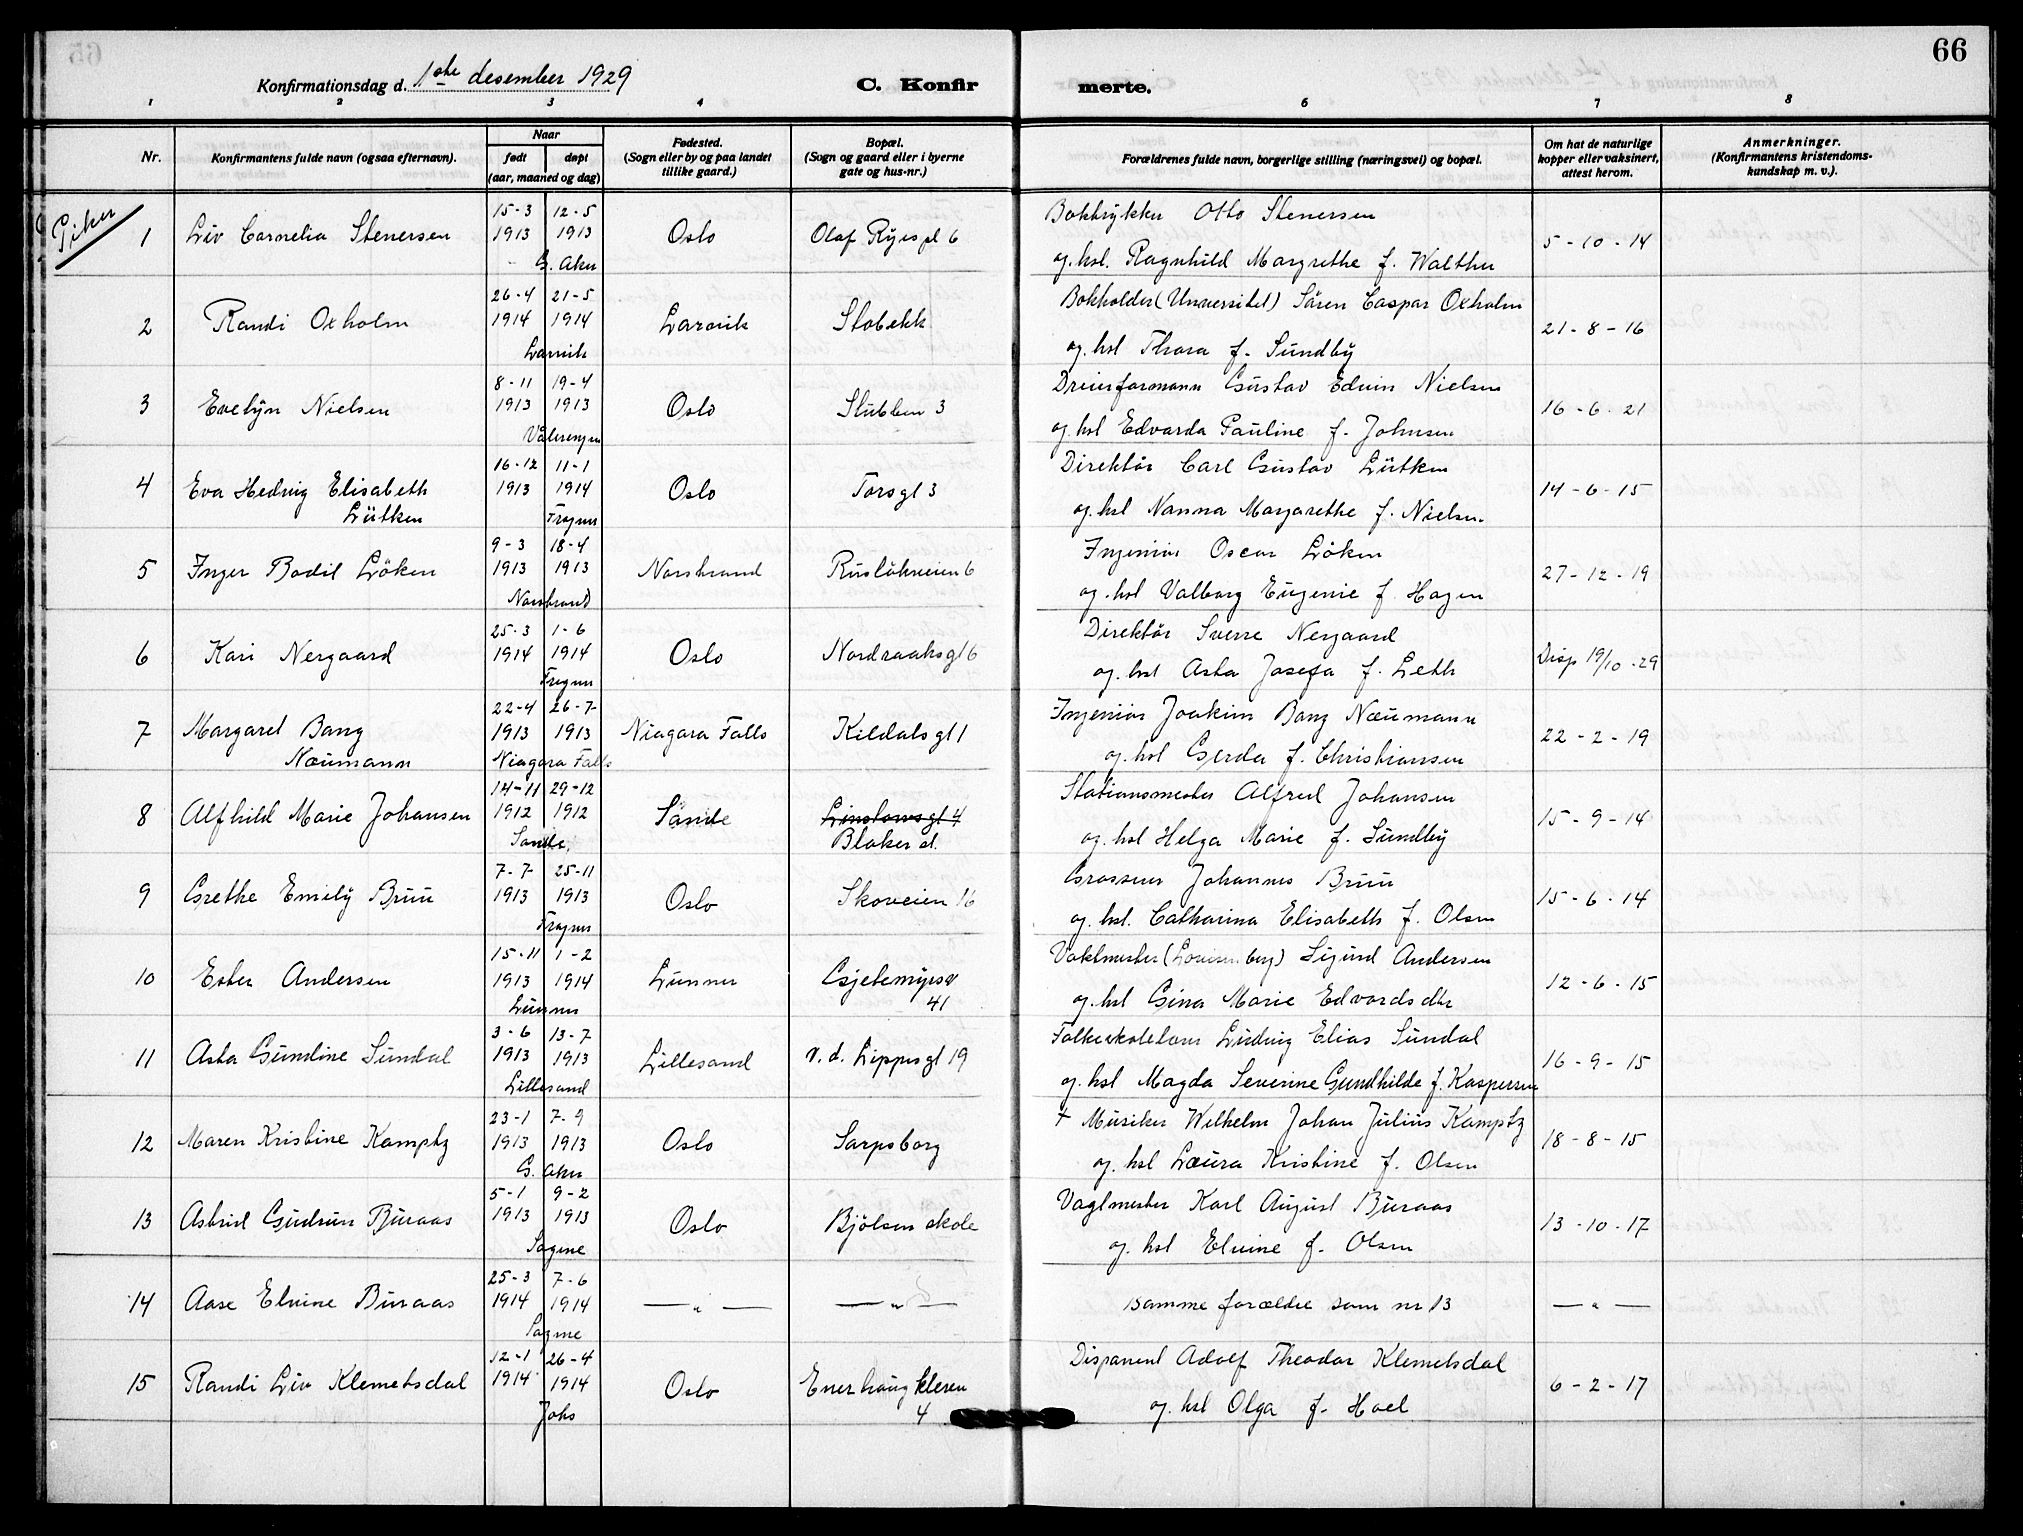 66
Konfirmationsdag d. 1ste desember 1929
C. Konfirmerte.
1 2 3 4 5 6 7 8
Nr.
Konfirmantens fulde navn (ogsaa efternavn).
Naar
født døpt
(aar, maaned og dag)
Fødested.
(Sogn eller by og paa landet
tillike gaard.)
Bopæl.
(Sogn og gaard eller i byerne
gate og hus-nr.)
Forældrenes fulde navn, borgerlige stilling (næringsvei) og bopæl.
Om hat de naturlige
kopper eller vaksinert,
attest herom.
Anmerkninger.
(Konfirmantens kristendoms-
kundskap m. v.).
Piker
15-3 12-5 Boktrykker Otto Stenersen
1 Liv Cornelia Stenersen 1913 1913 Oslo Olaf Ryes pl 6 5-10-14
G. Aker og. hst. Ragnhild Margrethe f. Walther
26-4 21-5 Bokholder (Universitet) Sören Caspar Oxholm
2 Randi Oxholm 1914 1914 Larvik Stabekk 21-8-16
Larvik og. hst Thora f. Sundby
8-11 19-4 Dreierformann Gustav Edvin Nielsen
3 Evelyn Nielsen 1913 1913 Oslo Stubben 3 16-6-21
Vålerengen og. hst Edvarda Pauline f. Johnsen
16-12 11-1 Direktör Carl Gustav Lütken
4 Eva Hedvig Elisabeth 1913 1914 Oslo Torsgt 3 14-6-15
Lütken Frogner og. hst Nanna Margarethe f. Nielsen
9-3 18-4 Ingeniör Oscar Löken
5 Inger Bodil Löken 1913 1913 Norstrand Ruslökveien 6 27-12-19
Norstrand og. hst Valborg Eugenie f. Hagen
25-3 1-6 Direktör Sverre Nergaard
6 Kari Nergaard 1914 1914 Oslo Nordraaksgt 6 Disp 19/10-29
Frogner og. hst Asta Josefa f. Leth
22-4 26-7 Ingeniör Joakim Bang Næumann
7 Margaret Bang 1913 1913 Niagara Falls Kildalsgt 1 22-2-19
Næumann Niagara Falls og. hst Gerda f. Christiansen
14-11 29-12 Stationsmester Alfred Johansen
8 Alfhild Marie Johansen 1912 1912 Sande Linstowsgt 4 15-9-14
Sande Blaker st. og. hst Helga Marie f. Sundby
7-7 25-11 Grosserer Johannes Bruu
9 Grethe Emily Bruu 1913 1913 Oslo Skoveien 16 15-6-14
Frogner og. hst. Catharina Elisabeth f. Olsen
15-11 1-2 Vaktmester Sigurd Andersen
10 Ester Andersen 1913 1914 Lunner Gjetemyrsv 12-6-15
Lunner 41 og. hst Gina Marie Edvardsdtr
3-6 13-7 Folkeskolelærer Ludvig Elias Sundal
11 Asta Gundine Sundal 1913 1913 Lillesand v. d. Lippesgt 19 16-9-15
Lillesand og. hst Magda Severine Gundhilde f. Kaspersen
23-1 7-9 + Musiker Wilhelm Johan Julius Kamptz
12 Maren Kristine Kamptz 1913 1913 Oslo Sarpsborg 18-8-15
G. Aker og. hst Læura Kristine f. Olsen
5-1 9-2 Vagtmester Karl August Buraas
13 Astrid Gudrun Buraas 1913 1913 Oslo Bjölsen skole 13-10-17
Sagene og. hst Elvine f. Olsen
25-3 7-6
14 Aase Elvine Buraas 1914 1914 — " — — " — samme forældre som nr 13 — " —
Sagene
12-1 26-4 Disponent Adolf Theodor Klemetsdal
15 Randi Liv Klemetsdal 1914 1914 Oslo Enerhaugkleven 6-2-17
Johs 4 og. hst Olga f. Hoel